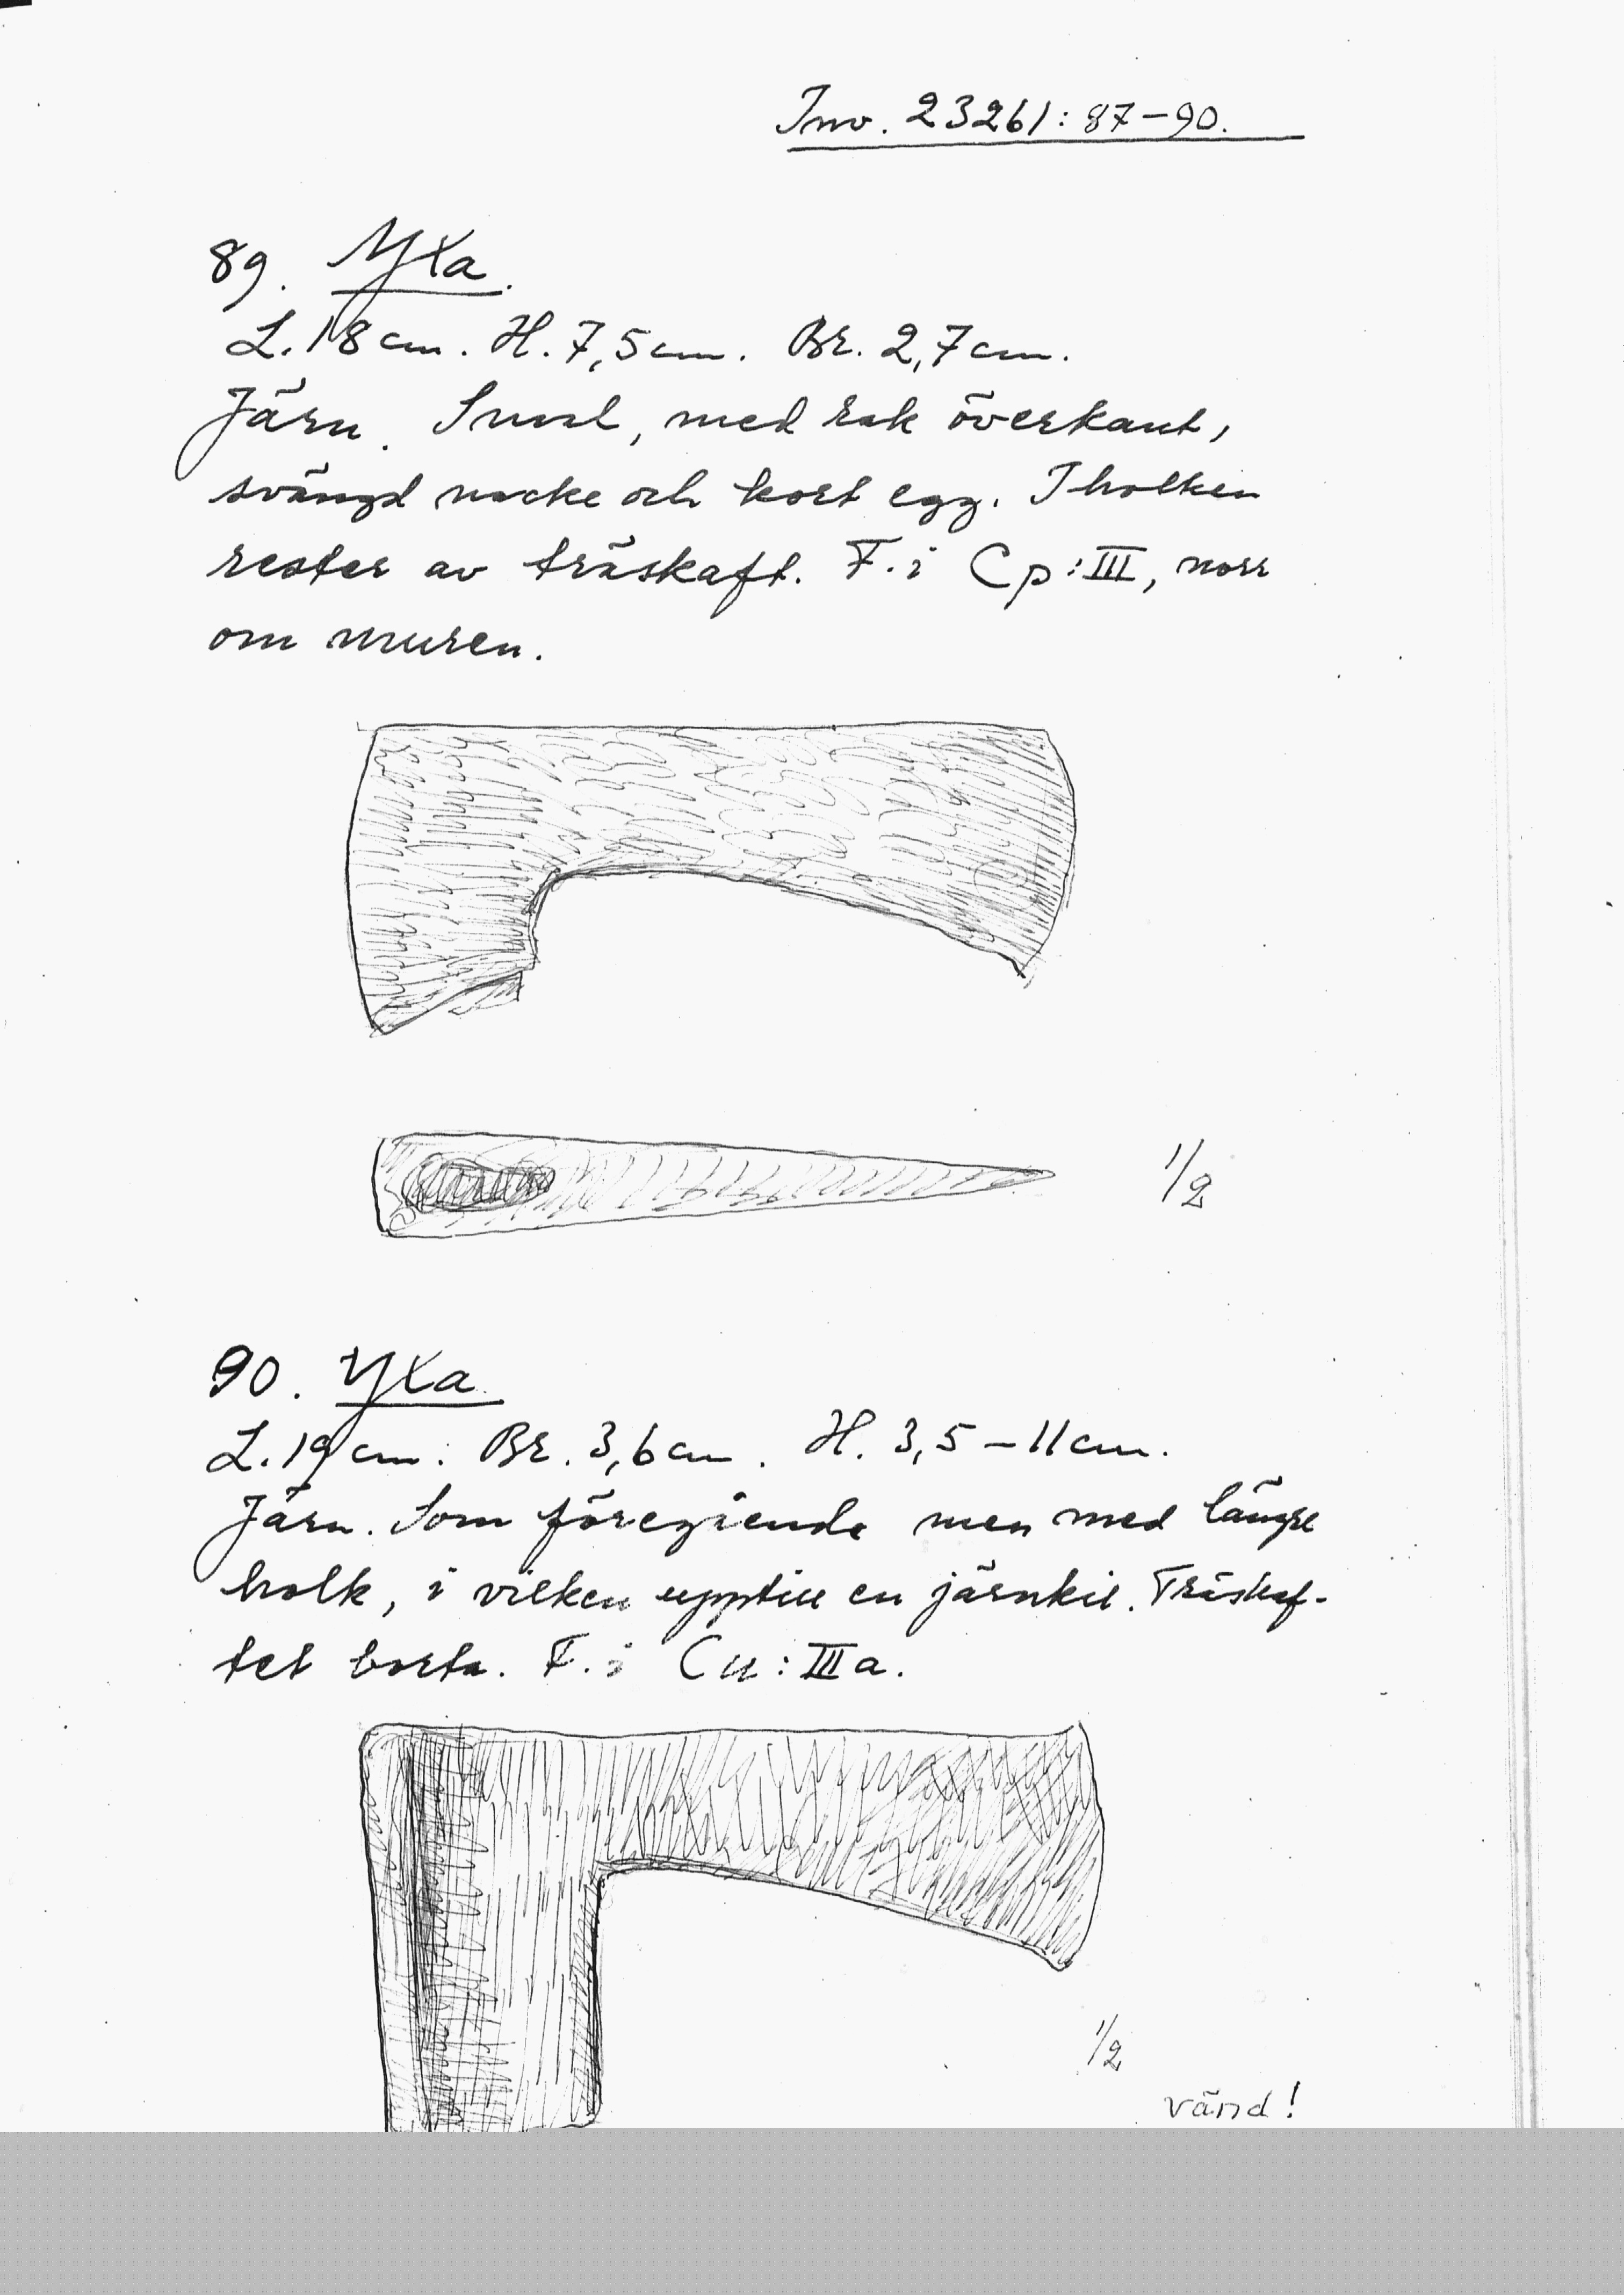 Inv. 23261:87–90.
89. Yxa.
L. 18 cm. H. 7,5 cm. Br. 2,7 cm.
Järn. Smal, med rak överkant,
svängd nacke och kort egg. I holken
rester av träskaft. F. i Cp:III, norr
om muren.
1/2
90. Yxa.
L. 19 cm. Br. 3,6 cm. H. 3,5–11 cm.
Järn. Som föregående men med längre
holk, i vilken upptill en järnkil. Träskaf-
tet borta. F. i Cu:IIIa.
1/2
vänd!